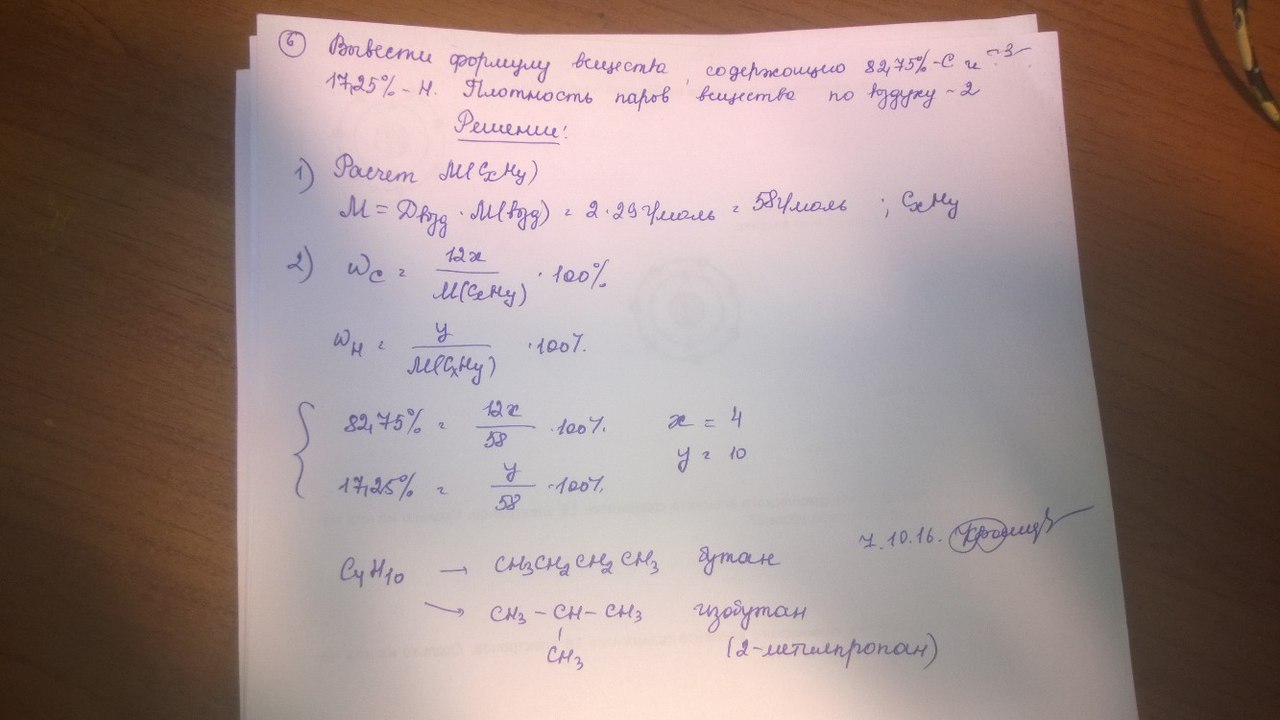 6 Вывести формулу вещества, содержащию 82,75%-С и
17,25% - Н. Плотность паров вещества по воздуху - 2
Решение:
1) Расчет M(CxHy)
M = Двозд · M(возд) = 2 · 29 г/моль = 58 г/моль ; CxHy
2) ωC = 12x / M(CxHy) · 100%
ωH = y / M(CxHy) · 100%.
82,75% = 12x / 58 · 100%. x = 4
17,25% = y / 58 · 100%. y = 10
7.10.16.
C4H10 → CH3CH2CH2CH3 бутан
→ CH3 - CH - CH3 изобутан
CH3 (2-метилпропан)